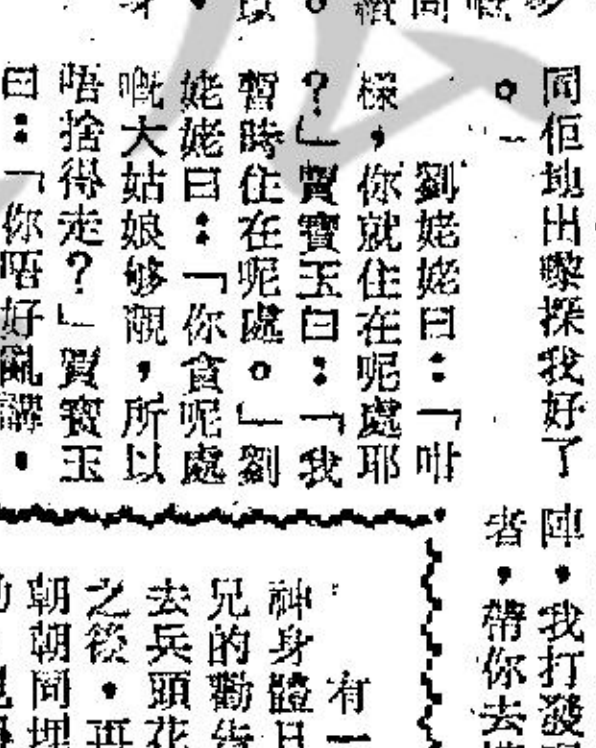 同佢地出嚟探我好了
。」
劉姥姥曰：「咁
樣，你就住在呢處耶
？」賈寶玉曰：「我
暫時住在呢處。」劉
姥姥曰：「你貪呢處
嘅大姑娘够靚，所以
唔捨得走？」賈寶玉
曰：「你唔好亂講，
陣，我打發
者，帶你去
有一
神身體日
兄的勸告
去兵頭花
之後，再
朝朝同埋